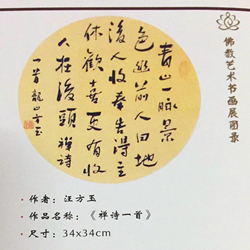 青山一脉景
色幽前人田地
後人收奉告得主
休歡喜更有收
人在後頭禅诗
一首 龍山方玉
佛教艺术书画展图录
· 作者：汪方玉
· 作品名称：《禅诗一首》
· 尺寸：34x34cm